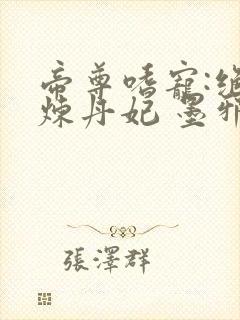 帝尊嗜寵:絕
煉丹妃 墨邪
張澤群